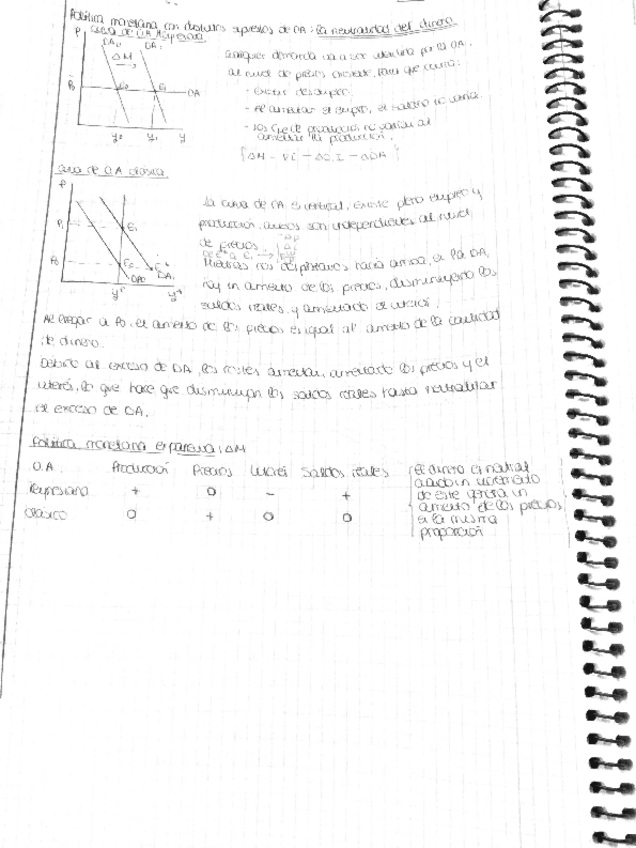 Política monetaria con distintos supuestos de OA: la neutralidad del dinero.
Curva de OA Keynesiana
P
DA₀ DA₁
ΔM
→
P₀ E₀ E₁ OA
y₀ y₁ y
Cualquier demanda va a ser por la OA.
al nivel de precios para que ocurra:
- Existir desempleo.
- Al aumentar el empleo, el salario no varía.
- los de producción no varían al
aumentar la producción.
Curva de OA clásica
P
P₁ E₁
P₀ E₀
DA₀ DA₁
La curva de OA es vertical, existe pleno empleo y
producción, ambos son independientes al nivel
de precios.
Mientras nos desplazamos hacia arriba, en la DA,
hay un aumento de los precios, disminuyendo los
saldos reales y aumentando el interés.
Al llegar a P₁, el aumento de los precios es igual al aumento de la cantidad
de dinero.
Debido al exceso de DA, los costes aumentan, aumentando los precios y el
interés, lo que hace que disminuyan los saldos reales hasta neutralizar
el exceso de DA.
Política monetaria expansiva: ΔM
O.A. Producción Precios Interés Saldos reales
Keynesiana + 0 - +
Clásico 0 + 0 0
El dinero es neutral
cuando un incremento
de este genera un
aumento de los precios
en la misma
proporción